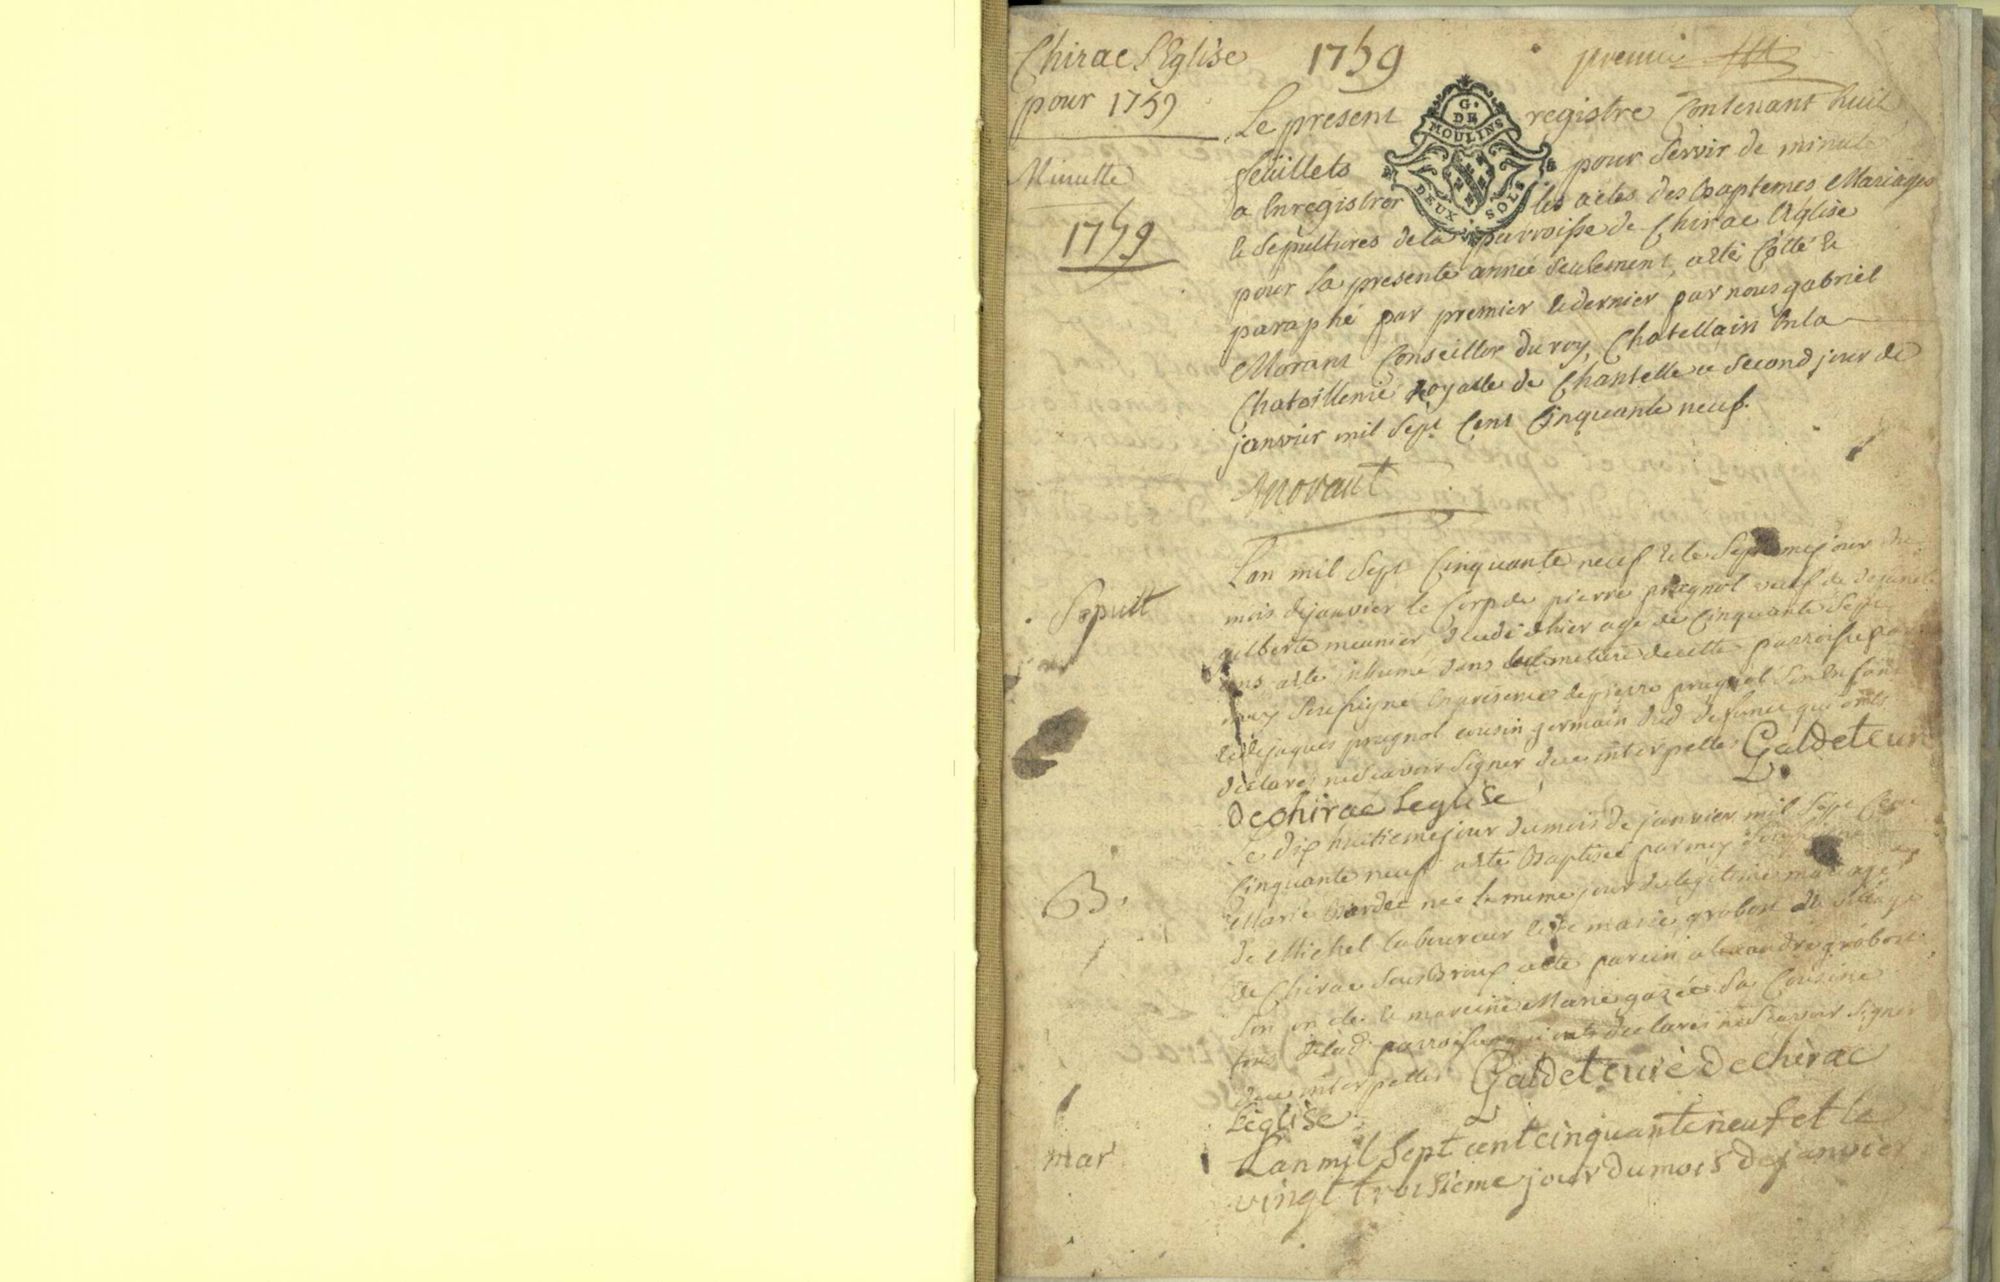 Chirac l'Eglise 1759 premier
pour 1759
Minutte
1759
G. DE MOULINS
DEUX SOLS
Le present registre Contenant huit
feüillets pour servir de minute
a Enregistrer les actes des Baptemes Mariages
& sepultures de la parroisse de Chirac l'Eglise
pour la presente année seulement, a eté Cotté &
paraphé par premier & dernier par nous gabriel
Morant Conseiller du roy, Chatellain En la
Chatellenie Royalle de Chantelle ce second jour de
janvier mil sept Cent Cinquante neuf.
Morant
Sepult
Lan mil sept Cinquante neuf & le septieme jour du
mois de janvier le Corp de pierre prugnol veuf de
gilberte meunier decedé d'hier age de Cinquante sept
ans a ete inhumé dans le Cimetiere de cette parroisse par
moy soussigné En presence de pierre prugnol son Enfant
& de jaques prugnol cousin germain dud defunct qui onts
declare ne scavoir signer de ce interpelles Galdet cure
de chirac Leglise
B.
Le dix huitieme jour du mois de janvier mil sept Cent
Cinquante neuf a eté Baptisée par moy soussigné
Marie née le meme jour du legitime mariage
de Michel laboureur & de marie grobost du village
de Chirac a eté parein alexandre grobost
son oncle & mareine Marie gazée sa Cousine
tous de lad. parroisse qui onts declares ne scavoir signer
de ce interpelles Galdet curé de chirac
Leglise
mar
Lan mil sept cent cinquante neuf et le
vingt troisieme jour du mois de janvier